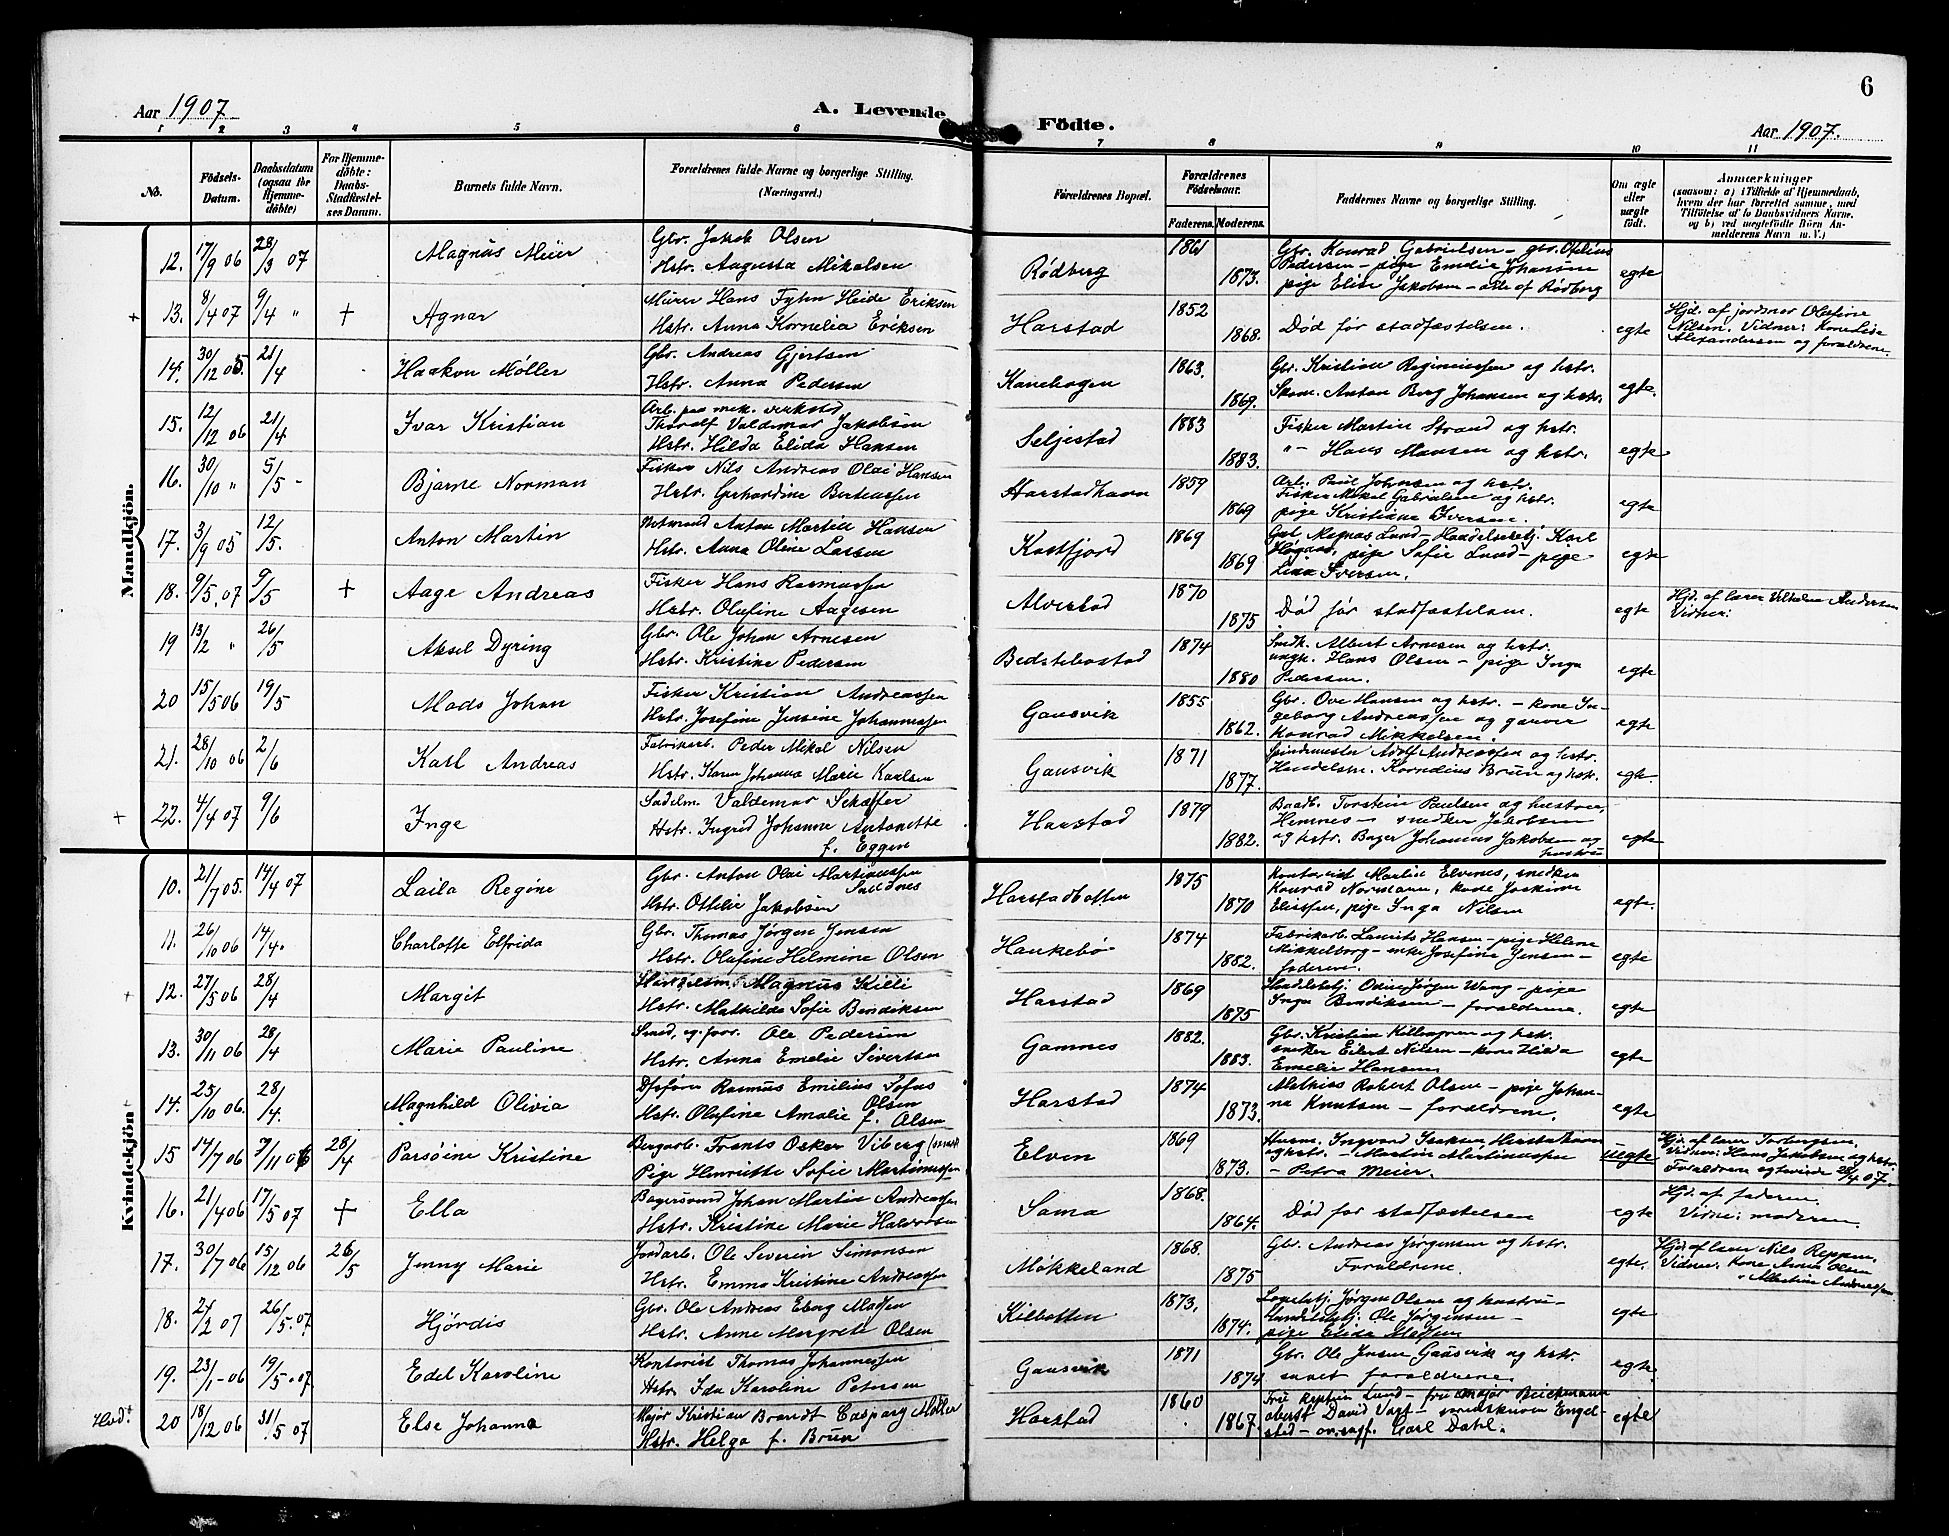 6
Aar 1907
A. Levende Födte.
Aar 1907.
1 2 3 4 5 6 7 8 9 10 11
No.
Födsels-Datum.
Daabsdatum (ogsaa for Hjemmedöbte)
For Hjemmedöbte: Daabs-Stadfæstelses Datum.
Barnets fulde Navn.
Forældrenes fulde Navne og borgerlige Stilling.
(Næringsvei.)
Forældrenes Bopæl.
Forældrenes Födselsaar.
Faderens. Moderens.
Faddernes Navne og borgerlige Stilling.
Om ægte eller uægte født.
Anmærkninger
(saasom: a) i Tilfælde af Hjemmedaab, hvem der har forrettet samme, med Tilföielse af to Daabsvidners Navne. og b) ved uægtefödte Börn Anmelderens Navn m. V.)
Mandkjön.
12. 17/9 06 28/3 07 Magnus Meier
Gbr. Jakob Olsen
Hstr. Augusta Mikalsen
Rødberg 1861 1873.
Gbr. Konrad Gabrielsen – gbr. Ofelius
Pedersen – pige Emelie Johansen
pige Elise Jakobsen – alle af Rødberg
egte
+ 13. 8/4 07 9/4 " + Agnar
Murer Hans Fyhn Heide Eriksen
Hstr. Anna Kornelia Eriksen
Harstad 1852 1868.
Død før stadfæstelsen.
egte
Hjd. af jordmor Olufine
Nilsen. Vidner: Kone Lise
Alexandersen og forældrene.
14. 30/12 05. 21/4 Haakon Møller
Gbr. Andreas Gjertsen
Hstr. Anna Pedersen
Kanebogen 1863. 1869.
Gbr. Kristian Reginiussen og hstr.
Skom. Anton Berg Johansen og hstr.
egte.
15. 12/12 06 21/4 Ivar Kristian
Arb. paa mek. verksted
Thoralf Valdemar Jakobsen
Hstr. Hilda Elida Hansen
Seljestad 1883 1883.
Fisker Martin Strand og hstr.
" – Hans Hansen og hstr.
egte
16. 30/10 " 5/5 – Bjarne Norman
Fisker Nils Andreas Olai Hansen
Hstr. Gerhardine Berteussen
Harstadhavn 1859 1869
Arb. Paul Johnsen og hstr.
Fisker Mikal Gabrielsen og hstr.
pige Kristiane Iversen.
egte
17. 3/9 05 12/5. Anton Martin
Anton Martin Hansen
Hstr. Anna Oline Larsen
Kastfjord 1869 1869
Gbr. Magnus Lund – Handelsbetj. Karl
pige Sofie Lund – pige
Lina Iversen.
egte
18. 9/5. 07 9/5 + Aage Andreas
Fisker Hans Rasmussen
Hstr. Olufine Aagesen
Alvestad 1870 1875
Død før stadfæstelsen.
egte
Hjd. af lærer Vilhelm Andersen
Vidner:
19 13/2 " 26/5 Aksel Dyring
Gbr. Ole Johan Arnesen
Hstr. Kristine Pedersen
Bedstebostad 1874 1880
Smdk. Albert Arnesen og hstr.
ungk. Hans Olsen – pige Inga
Pedersen.
egte
20 15/5 06 19/5 Mads Johan
Fisker Kristian Andreassen
Hstr. Josefine Jensine Johannessen
Gausvik 1855 1862.
Gbr. Ove Hansen og hstr. – kone In-
geborg Andreassen og garver
Konrad Mikkelsen.
egte
21. 28/10 06 2/6 Karl Andreas
Fabrikarb. Peder Mikal Nilsen
Hstr. Karen Johanna Marie Karlsen
Gausvik 1871 1877.
Grindemester Adolf Andreassen og hstr.
Handelsm. Kornelius Bruun og hstr.
egte.
+ 22. 4/4 07 9/6 Inge
Sadelm. Valdemar Schæffer
Hstr. Ingrid Johanne Antonette
f. Eggen
Harstad 1879 1882.
Baadb. Torstein Paulsen og hustru,
Hemnes – snedker Jakobsen
og hstr. Bager Johannes Jakobsen og
hustru
egte
Kvindekjön
10. 21/7 05. 14/4 07 Laila Regine
Gbr. Anton Olai Martinussen
Hstr. Ottilie Jakobsen
Harstadbotten 1875 1870
Kontorist Martin Elvenes, snedker
Konrad Normann, kone Joakime
Eliessen, pige Inga Nilsen
egte.
11. 26/10 06 14/4. Charlotte Elfrida
Gbr. Thomas Jørgen Jensen
Hstr. Olufine Helmine Olsen
Haukebø 1874 1882.
Fabrikarb. Laurits Hansen – pige Helene
Mikkelborg – enke Josefine Jensen –
faderene.
egte
+ 12. 27/5 06 28/4 Margit
Magnus Killi
Hstr. Mathilde Sofie Bendiksen
Harstad 1869 1875
Handelsbetj. Odin Jørgen Wang – pige
Inga Bendiksen – forældrene.
egte
13. 30/11 06 28/4 Marie Pauline
Smed, og forr. Ole Pedersen
Hstr. Anna Emelie Sivertsen
Gamnes 1882. 1883.
Gbr. Kristian Killengren og hstr.
snedker Eilert Nilsen – kone Hilda
Emelie Hansen
egte
14. 25/10 06. 28/4. Magnhild Olivia +
Rasmus Emilius Tofus
Hstr. Olufine Amalie Olsen
f. Olsen
Harstad 1874 1873.
Mathias Robert Olsen – pige Johan-
na Knutsen – forældrene.
egte
15 14/7 06 7/11 06 28/4 Parsøine Kristine
Bergarb. Frants Oskar Viberg
Pige Henriette Sofie Martinussen
Elven 1869 1873.
Husm. Ingvard Isaksen Harstadhavn
og hstr. – Martin Martinussen
– Petra Meier.
uegte
Hjd. af lærer Torbergsen.
Vidner: Hans Jakobsen og hstr.
Forældrene egteviede 28/4 07.
16. 21/4 06 17/5 07 + Ella
Bagersvend Johan Martin Andreassen
Hstr. Kristine Marie Halvorsen
Sama 1868. 1864.
Død før stadfæstelsen
egte
Hjd. af faderen.
Vidne: moderen.
17. 30/7 06 15/12 06 26/5 Jenny Marie
Jordarb. Ole Severin Simonsen
Hstr. Emma Kristine Andreassen
Møkkeland 1868. 1875
Gbr. Andreas Jørgensen og hstr.
Forældrene.
egte.
Hjd. af lærer Nils Reppen.
Vidner: Kone Anna Olsen
" Albertine Andreassen
18. 2/2 07 26/5. 07 Hjørdis
Gbr. Ole Andreas Eberg Madsen
Hstr. Anne Margrete Olsen
Kilbotten 1873. 1874.
Jørgen Olsen og hustru –
Handelsbetj. Ole Jørgensen –
pige Elida Madsen
egte
19. 23/1 – 06 19/5. 07 Edel Karoline
Kontorist Thomas Johannessen
Hstr. Ida Karoline Petersen
Gausvik 1871 1874
Gbr. Ole Jensen Gausvik og hstr.
samt forældrene.
egte.
+ 20 18/12 06 31/5 07 Else Johanne
Major Kristian Brandt Casparg Møller
Hstr. Helga f. Brun
Harstad 1860 1867
Frue kaptein Lund – frue major Beichmann
oberst David Vogt – Engel-
stad – Carl Dahl.
egte